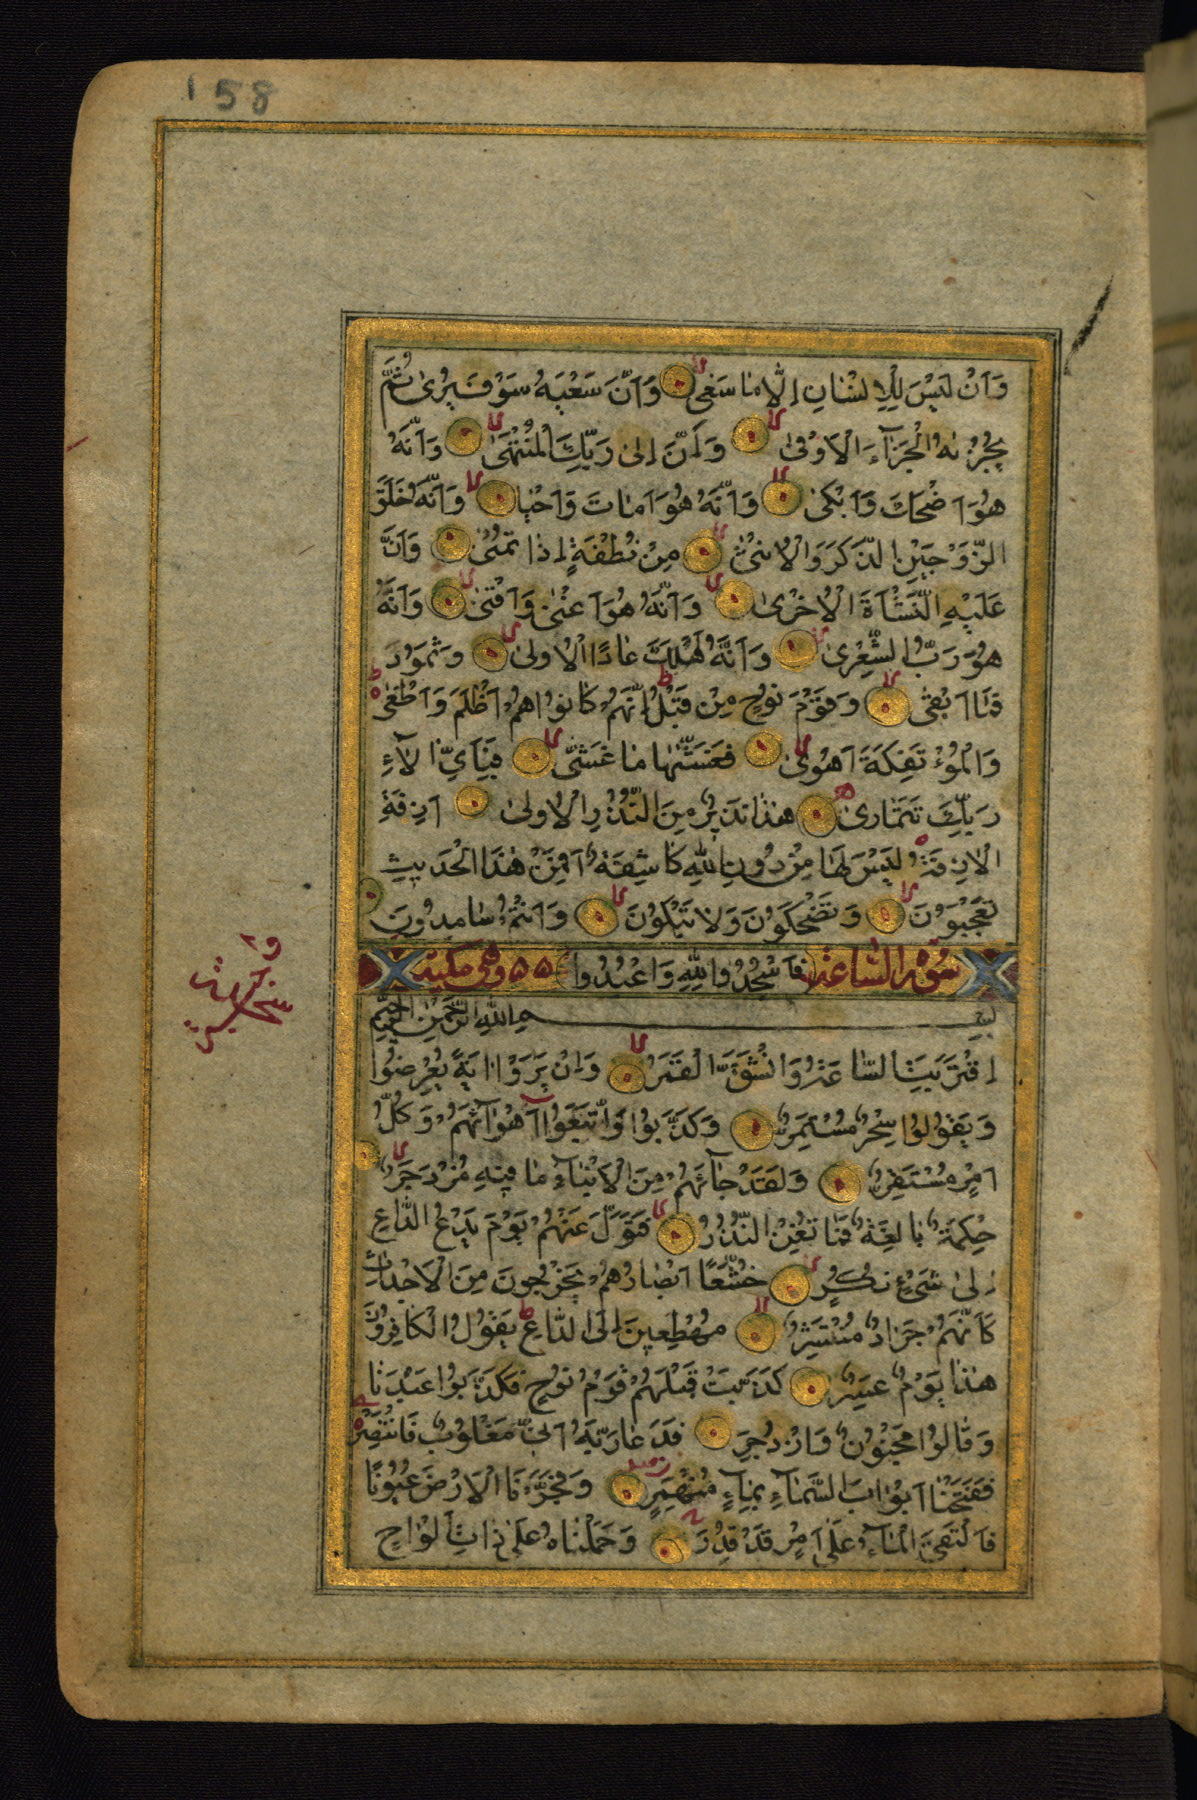 158
وَاَنْ لَيْسَ لِلْاِنْسَانِ اِلَّا مَا سَعٰى وَاَنَّ سَعْيَهُ سَوْفَ يُرٰى ثُمَّ
يُجْزٰيهُ الْجَزَآءَ الْاَوْفٰى وَاَنَّ اِلٰى رَبِّكَ الْمُنْتَهٰى وَاَنَّهُ
هُوَ اَضْحَكَ وَاَبْكٰى وَاَنَّهُ هُوَ اَمَاتَ وَاَحْيَا وَاَنَّهُ خَلَقَ
الزَّوْجَيْنِ الذَّكَرَ وَالْاُنْثٰى مِنْ نُطْفَةٍ اِذَا تُمْنٰى وَاَنَّ
عَلَيْهِ النَّشْاَةَ الْاُخْرٰى وَاَنَّهُ هُوَ اَغْنٰى وَاَقْنٰى وَاَنَّهُ
هُوَ رَبُّ الشِّعْرٰى وَاَنَّهُ اَهْلَكَ عَادًا الْاُولٰى وَثَمُودَ
فَمَا اَبْقٰى وَقَوْمَ نُوحٍ مِنْ قَبْلُ اِنَّهُمْ كَانُوا هُمْ اَظْلَمَ وَاَطْغٰى
وَالْمُؤْتَفِكَةَ اَهْوٰى فَغَشّٰيهَا مَا غَشّٰى فَبِاَيِّ الْآءِ
رَبِّكَ تَتَمَارٰى هٰذَا نَذِيرٌ مِنَ النُّذُرِ الْاُولٰى اَزِفَةِ
الْاٰزِفَةُ لَيْسَ لَهَا مِنْ دُونِ اللهِ كَاشِفَةٌ اَفَمِنْ هٰذَا الْحَدِيثِ
تَعْجَبُونَ وَتَضْحَكُونَ وَلَا تَبْكُونَ وَاَنْتُمْ سَامِدُونَ
سورة الساعة فَاسْجُدُوا لِلّٰهِ وَاعْبُدُوا ٥٥ وهى مكية
بسم الله الرحمن الرحيم
اِقْتَرَبَتِ السَّاعَةُ وَانْشَقَّ الْقَمَرُ وَاِنْ يَرَوْا اٰيَةً يُعْرِضُوا
وَيَقُولُوا سِحْرٌ مُسْتَمِرٌّ وَكَذَّبُوا وَاتَّبَعُوا اَهْوَآءَهُمْ وَكُلُّ
اَمْرٍ مُسْتَقِرٌّ وَلَقَدْ جَآءَهُمْ مِنَ الْاَنْبَآءِ مَا فِيهِ مُزْدَجَرٌ
حِكْمَةٌ بَالِغَةٌ فَمَا تُغْنِ النُّذُرُ فَتَوَلَّ عَنْهُمْ يَوْمَ يَدْعُ الدَّاعِ
اِلٰى شَيْءٍ نُكُرٍ خُشَّعًا اَبْصَارُهُمْ يَخْرُجُونَ مِنَ الْاَجْدَاثِ
كَاَنَّهُمْ جَرَادٌ مُنْتَشِرٌ مُهْطِعِينَ اِلَى الدَّاعِ يَقُولُ الْكَافِرُونَ
هٰذَا يَوْمٌ عَسِرٌ كَذَّبَتْ قَبْلَهُمْ قَوْمُ نُوحٍ فَكَذَّبُوا عَبْدَنَا
وَقَالُوا مَجْنُونٌ وَازْدُجِرَ فَدَعَا رَبَّهُ اَنِّى مَغْلُوبٌ فَانْتَصِرْ
فَفَتَحْنَا اَبْوَابَ السَّمَآءِ بِمَآءٍ مُنْهَمِرٍ وَفَجَّرْنَا الْاَرْضَ عُيُونًا
فَالْتَقَى الْمَآءُ عَلٰى اَمْرٍ قَدْ قُدِرَ وَحَمَلْنَاهُ عَلٰى ذَاتِ اَلْوَاحٍ